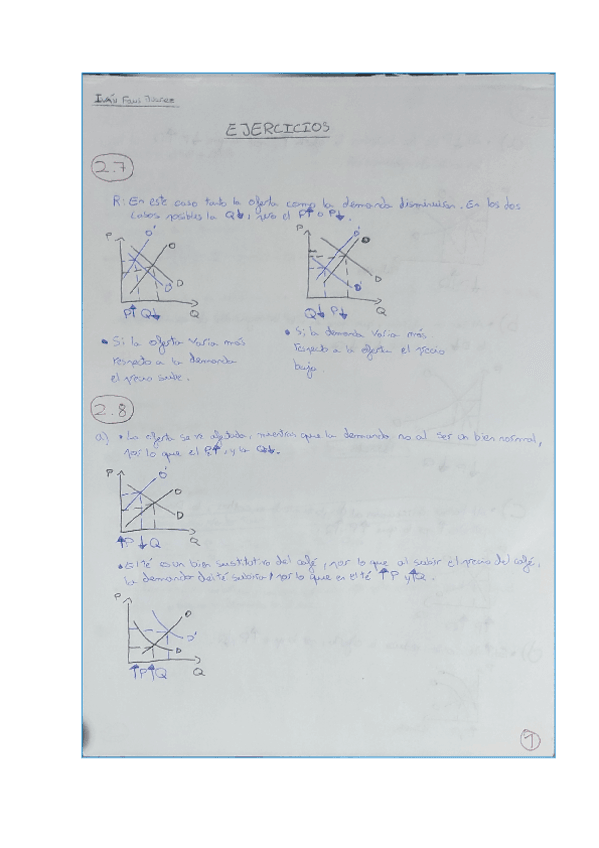 Iván
EJERCICIOS
2.7
R: En este caso tanto la oferta como la demanda disminuirán. En los dos
casos posibles la Q↓, pero el P↑ o P↓.
P O' O D' D Q
P↑ Q↓
P O' O D' D Q
Q↓ P↓
• Si la oferta varia más
respecto a la demanda
el precio sube.
• Si la demanda varia más
respecto a la oferta el precio
baja.
2.8
a) • La oferta se ve afectada, mientras que la demanda no al ser un bien normal,
por lo que el P↑, y la Q↓.
P O' O D Q
↑P ↓Q
• El té es un bien sustitutivo del café, por lo que al subir el precio del café,
la demanda del té subiría, por lo que en el té ↑P y ↑Q.
P O D' D Q
↑P ↑Q
1